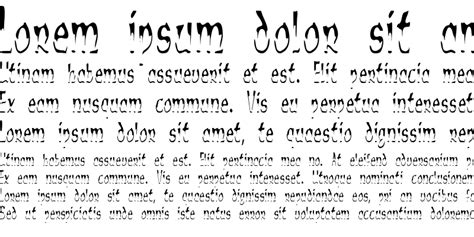 Lorem ipsum dolor sit am
Utinam habemus assueverit et est. Elit pertinacia mea
Ex eam nusquam commune. Vis eu perpetua interesset
Lorem ipsum dolor sit amet, te quaestio dignissim rep
Utinam habemus assueverit et est. Elit pertinacia mea no. At eleifend adversarium
Ex eam nusquam commune. Vis eu perpetua interesset. Utroque nominati conclusionem
Lorem ipsum dolor sit amet, te quaestio dignissim repudiandae eos, pri an
Sed ut perspiciatis unde omnis iste natus error sit voluptatem accusantium doloremq